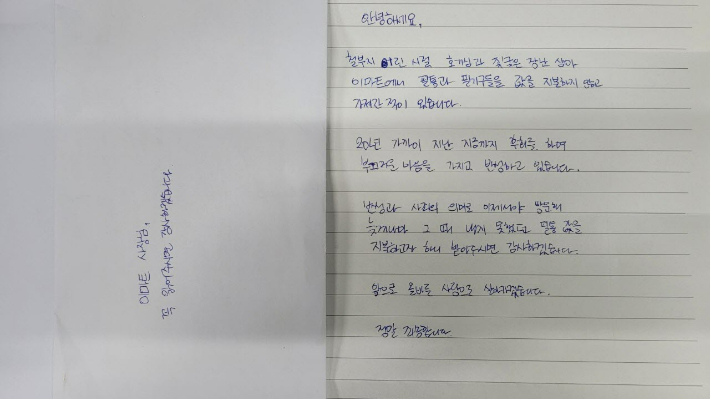 이마트 사장님,
꼭 읽어주시면 감사하겠습니다
안녕하세요,
철부지 어린 시절 호기심과 짓궂은 장난 삼아
이마트에서 필통과 필기구들을 값을 지불하지 않고
가져간 적이 있습니다.
20년 가까이 지난 지금까지 후회를 하며
부끄러운 마음을 가지고 반성하고 있습니다.
반성과 사과의 의미로 이제서야 방문해
늦게나마 그 때 내지 못했던 필통 값을
지불하고자 하니 받아주시면 감사하겠습니다.
앞으로 올바른 사람으로 살아가겠습니다.
정말 죄송합니다